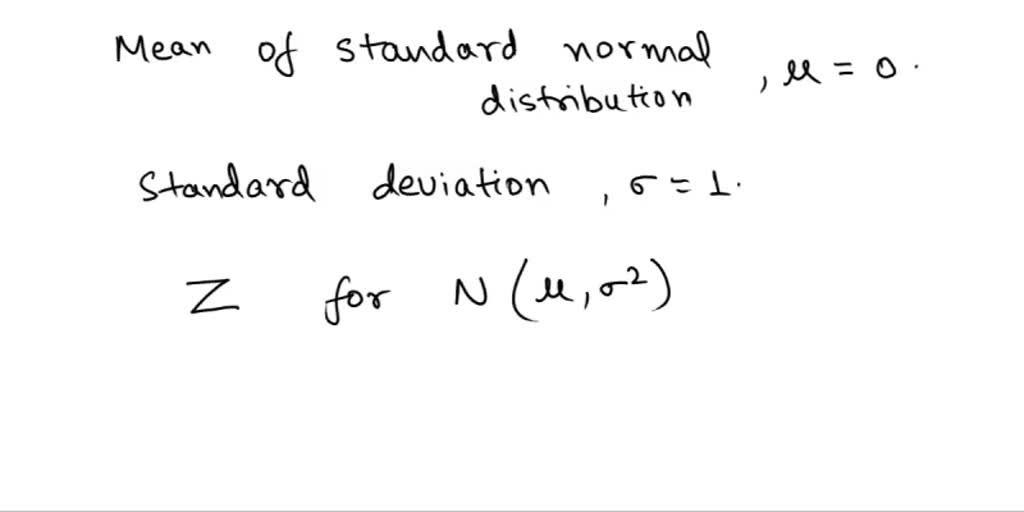 Mean of standard normal distribution, μ = 0.
Standard deviation, σ = 1.
Z for N (μ, σ²)